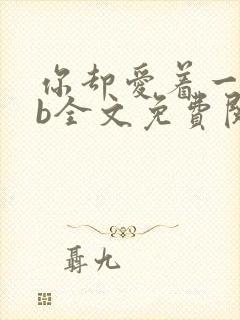 你却爱着一
b全文免费阅
聶九